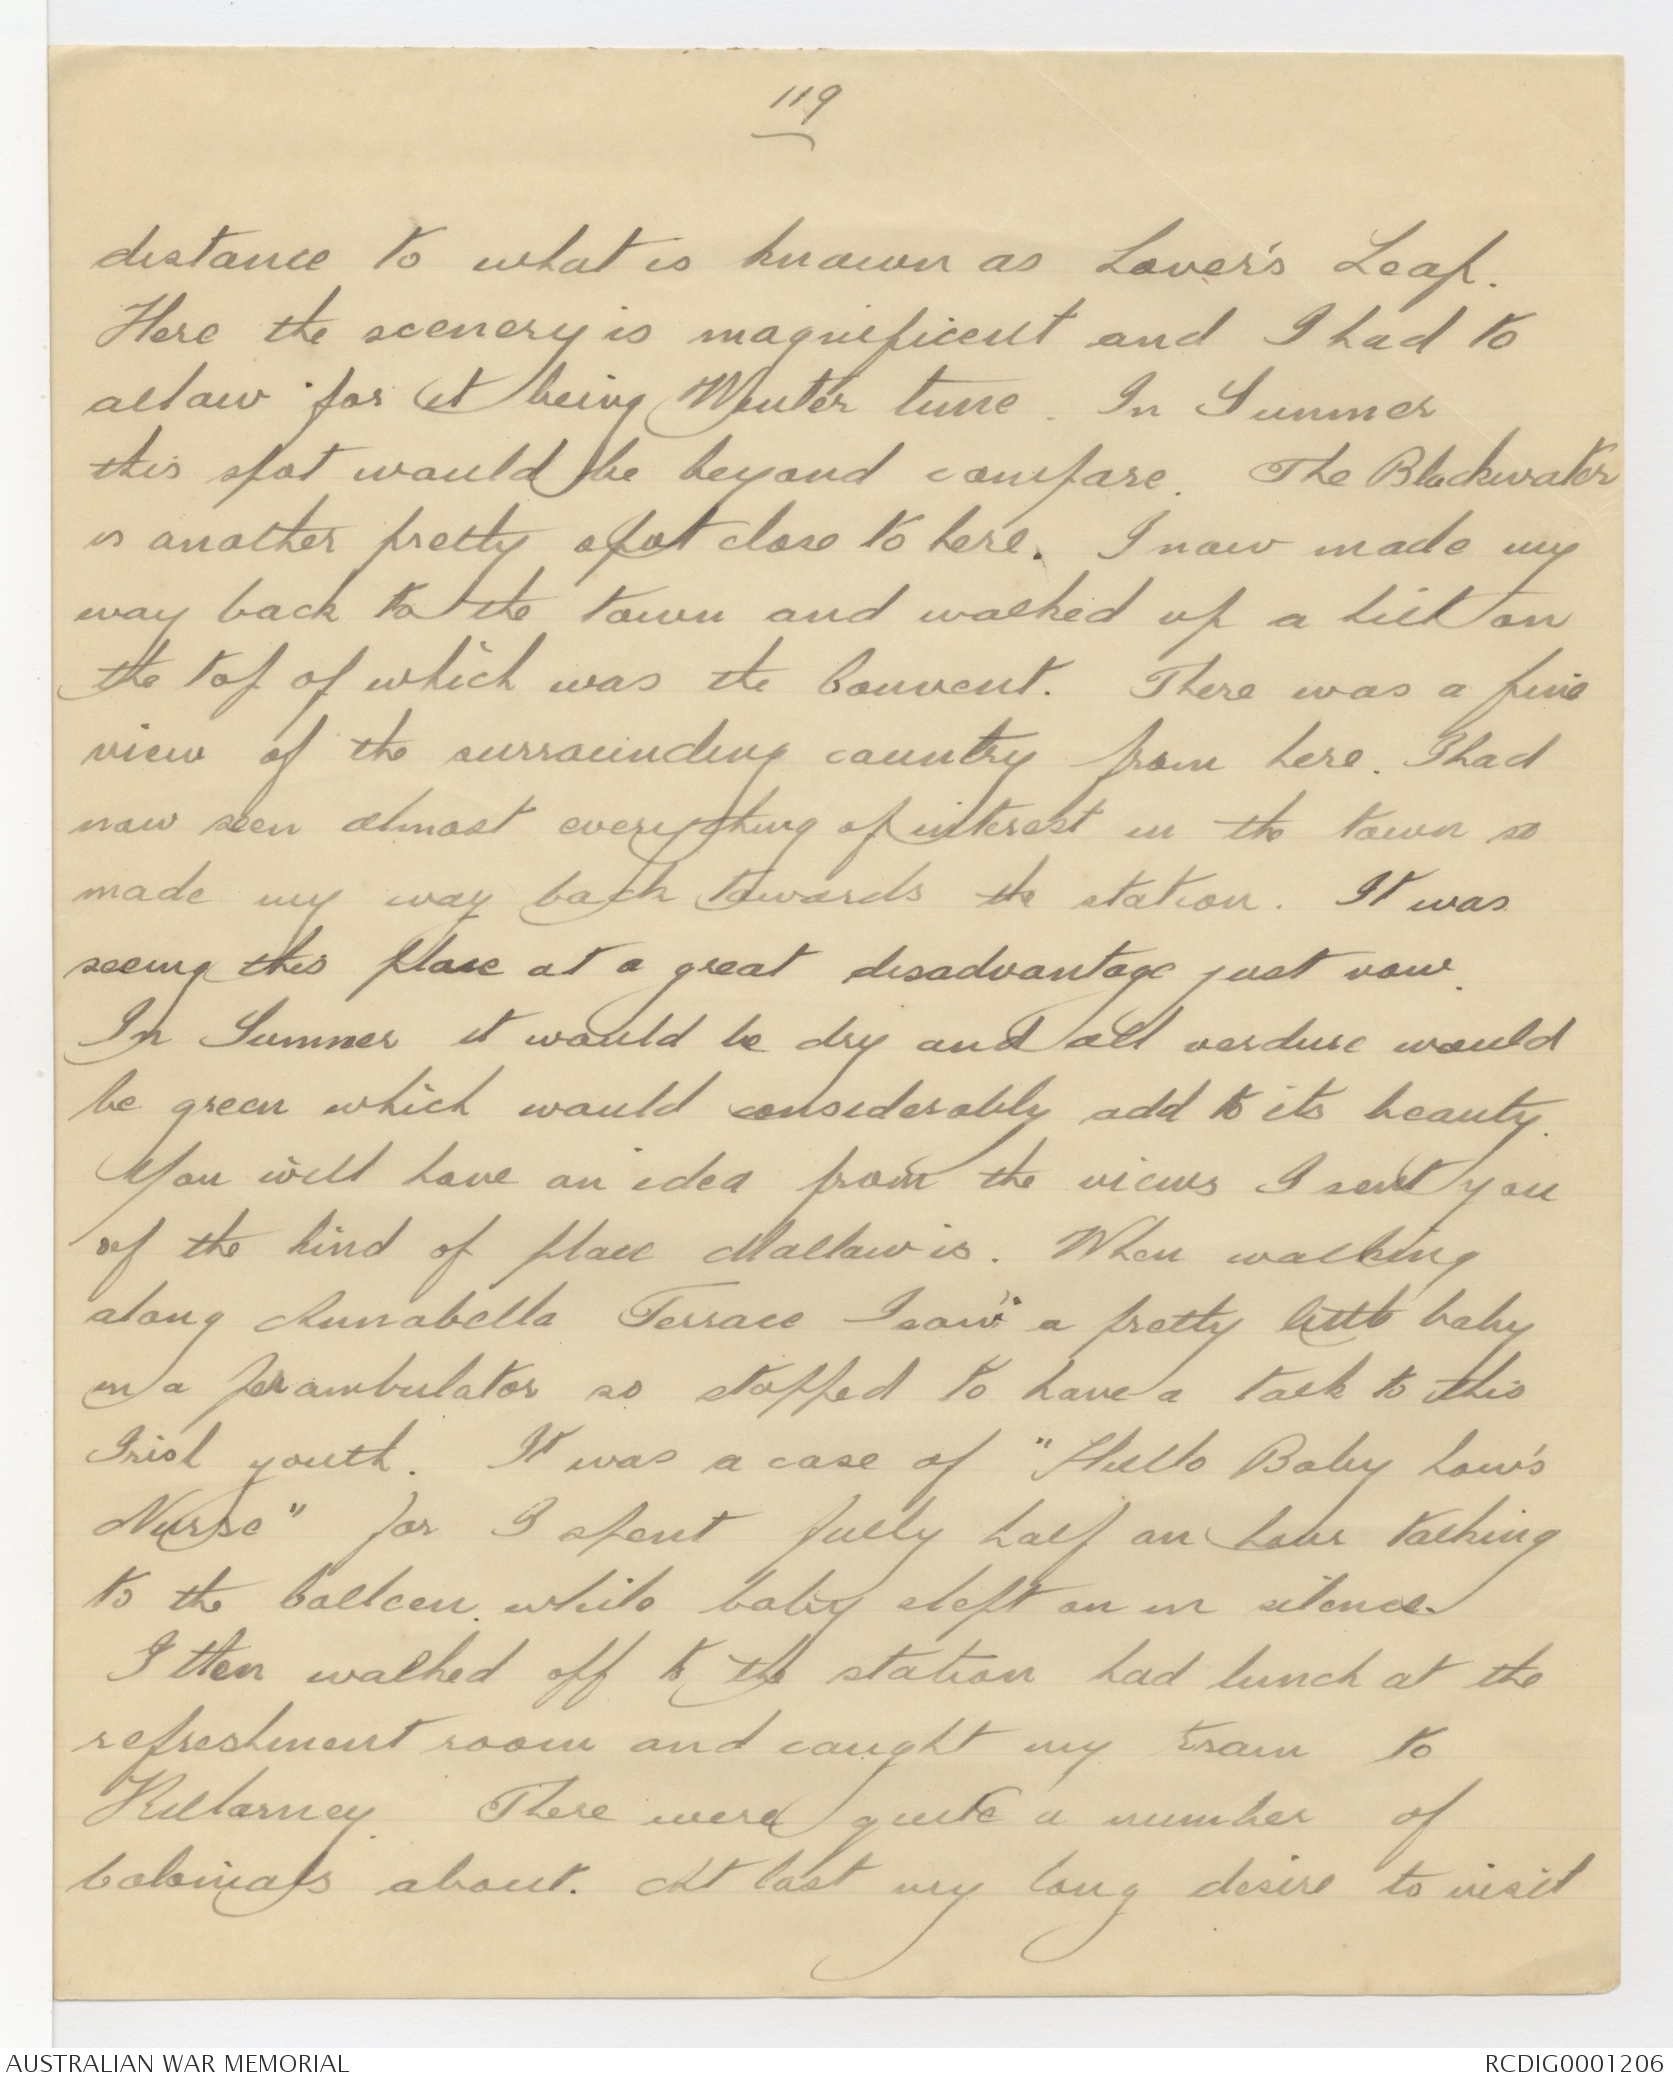 119
distance to what is known as Lover's Leap.
Here the scenery is magnificent and I had to
allow for it being Winter time. In Summer
this spot would be beyond compare. The Blackwater
is another pretty spot close to here. I now made my
way back to the town and walked up a hill on
the top of which was the Convent. There was a fine
view of the surrounding country from here. I had
now seen almost everything of interest in the town so
made my way back towards the station. It was
seeing this place at a great disadvantage just now.
In Summer it would be dry and all verdure would
be green which would considerably add to its beauty.
You will have an idea from the views I sent you
of the kind of place Mallow is. When walking
along Annabella Terrace I saw a pretty little baby
in a perambulator so stopped to have a talk to this
Irish youth. It was a case of "Hullo Baby how's
Nurse" for I spent fully half an hour talking
to the Colleen while baby slept on in silence.
I then walked off to the station had lunch at the
refreshment room and caught my train to
Killarney. There were quite a number of
Colonials about. At last my long desire to visit
AUSTRALIAN WAR MEMORIAL
RCDIG0001206